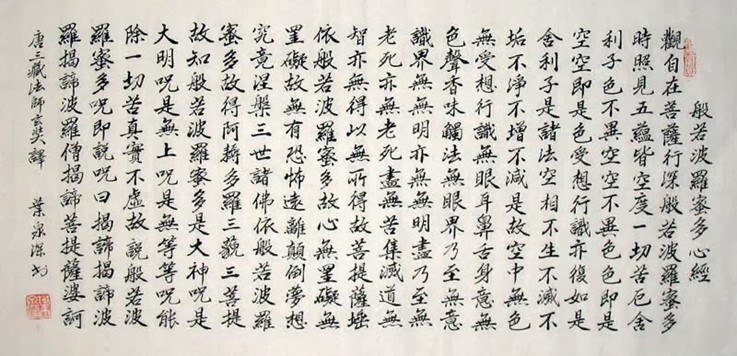 般若波羅蜜多心經
觀自在菩薩行深般若波羅蜜多
時照見五蘊皆空度一切苦厄舍
利子色不異空空不異色色即是
空空即是色受想行識亦復如是
舍利子是諸法空相不生不滅不
垢不淨不增不減是故空中無色
無受想行識無眼耳鼻舌身意無
色聲香味觸法無眼界乃至無意
識界無無明亦無無明盡乃至無
老死亦無老死盡無苦集滅道無
智亦無得以無所得故菩提薩埵
依般若波羅蜜多故心無罣礙無
罣礙故無有恐怖遠離顛倒夢想
究竟涅槃三世諸佛依般若波羅
蜜多故得阿耨多羅三藐三菩提
故知般若波羅蜜多是大神呪是
大明呪是無上呪是無等等呪能
除一切苦真實不虛故說般若波
羅蜜多呪即說呪曰揭諦揭諦波
羅揭諦波羅僧揭諦菩提薩婆訶
唐三藏法師玄奘譯 葉泉深